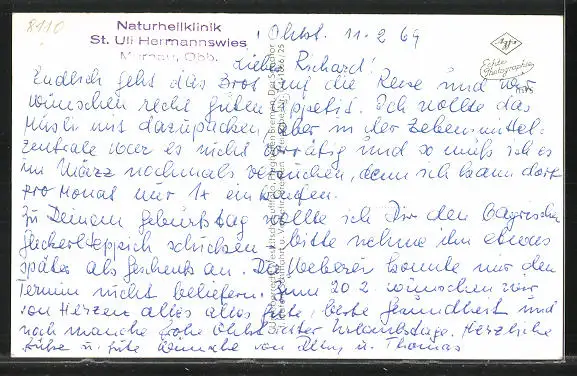 8110
Naturheilklinik
St. Uli Hermannswies
Murnau, Obb.
Ohlst. 11.2.69
Agfa
Echte Photographie
Lieber Richard!
Endlich geht das Brot auf die Reise und wir
wünschen recht guten Appetit. Ich wollte das
Müsli mit dazupacken, aber in der Lebensmittel-
zentrale war es nicht vorrätig und so muß ich es
im März nochmals versuchen, denn ich kann dort
pro Monat nur 1x einkaufen.
Zu Deinem Geburtstag wollte ich Dir den bayrischen
teppich schicken - bitte nehme ihn etwas
später als Geschenk an. Die Weberei konnte mir den
Termin nicht beliefern. Zum 20.2 wünschen wir
von Herzen alles alles Gute, beste Gesundheit und
noch manche frohe Urlaubstage. Herzliche
Grüße u. gute Wünsche von u. Thomas